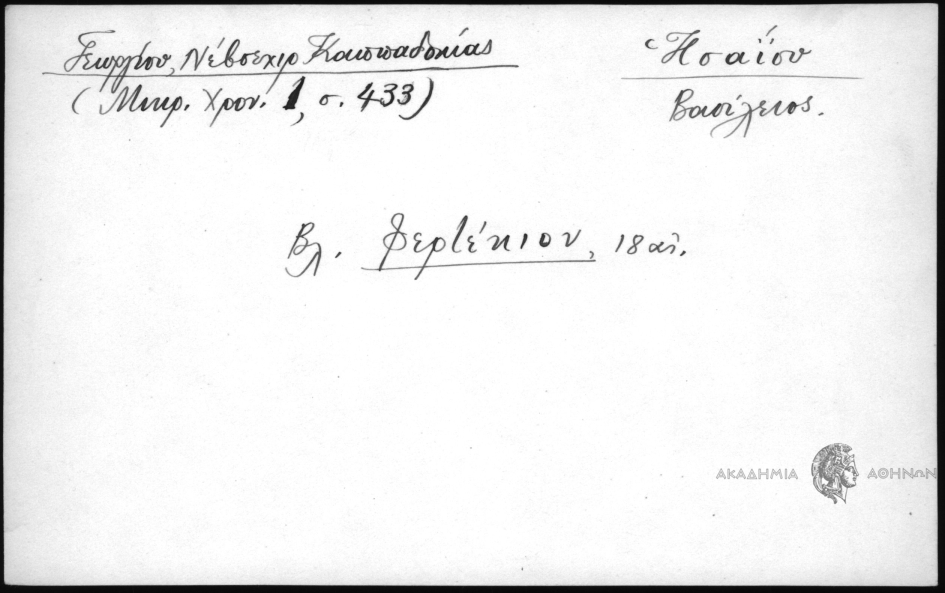 Γεωργίου, Νέβσεχιρ Καππαδοκίας
(Μικρ. Χρον. 1, σ. 433)
Ἡσαΐου
Βασίλειος.
Βλ. Φερτέκιον, 18α).
ΑΚΑΔΗΜΙΑ ΑΘΗΝΩΝ